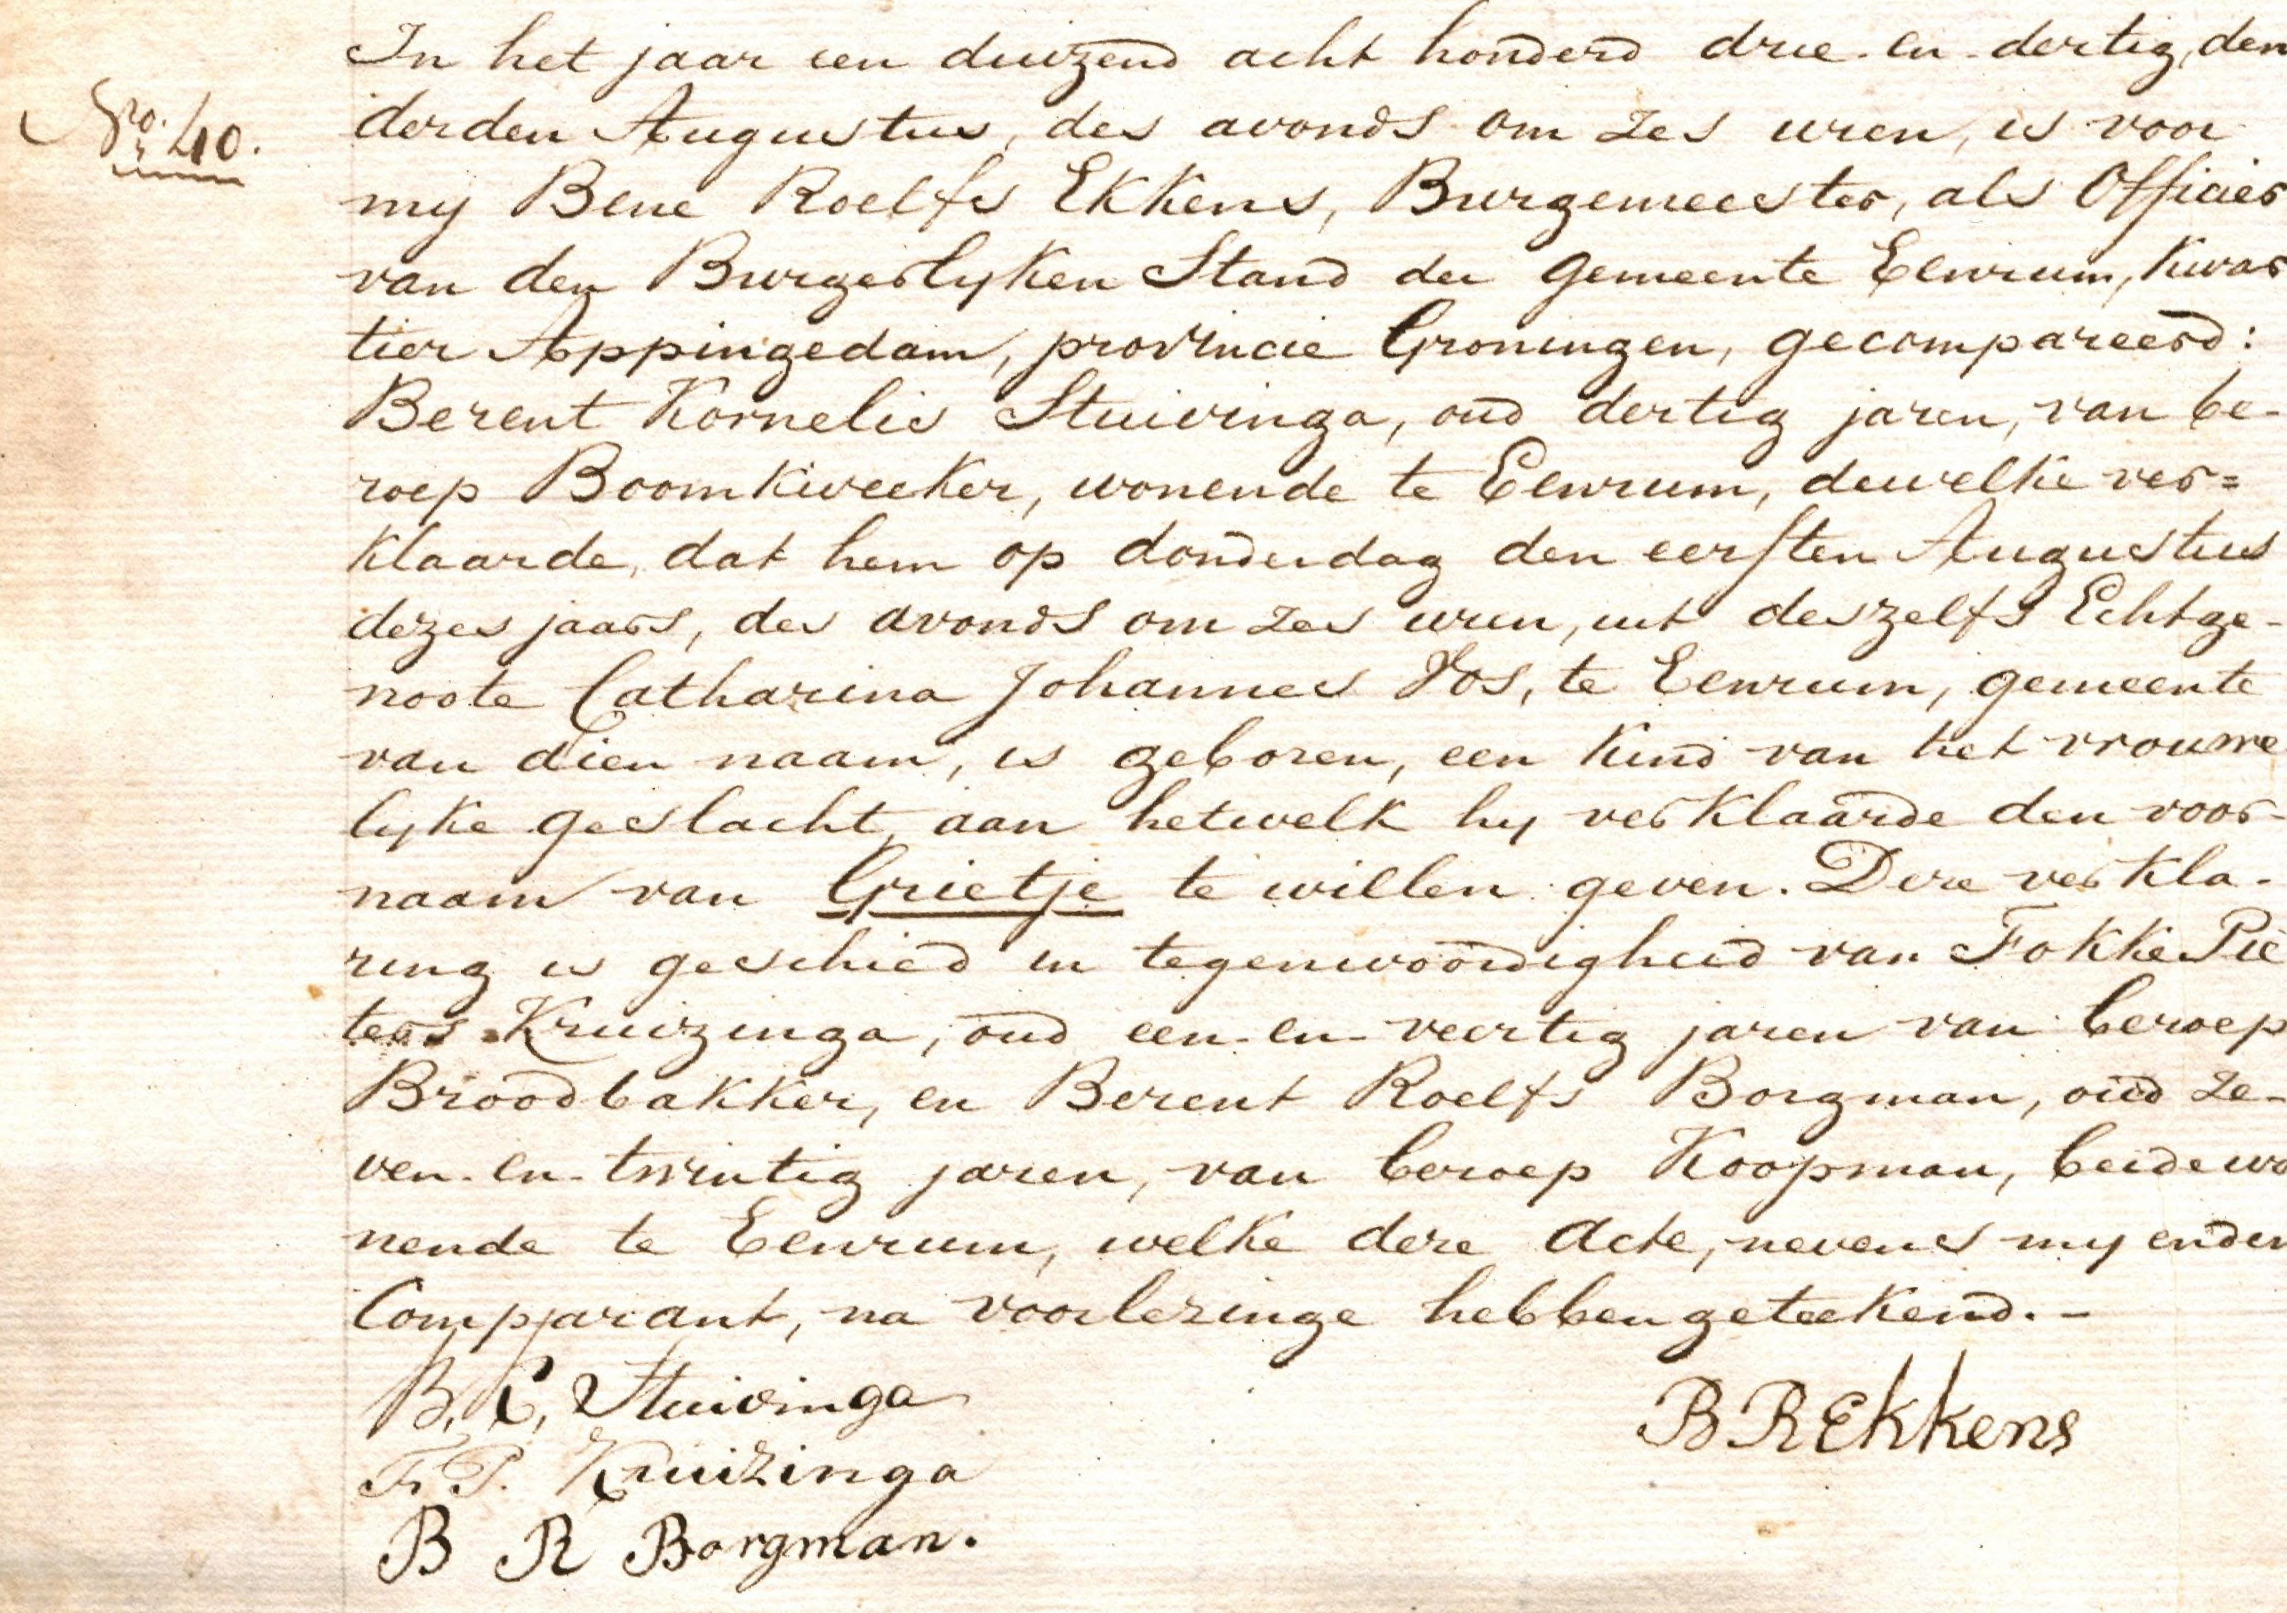 In het jaar een duizend acht honderd drie-en-dertig, den
Nro. 40.
derden Augustus, des avonds om zes uren, is voor
my Bene Roelfs Ekkens, Burgemeester, als Officier
van den Burgerlyken Stand der Gemeente Eenrum, Kwar
tier Appingedam, provincie Groningen, gecompareerd:
Berent Kornelis Stuivinga, oud dertig jaren, van be-
roep Boomkweeker, wonende te Eenrum, dewelke ver=
klaarde, dat hem op donderdag den eersten Augustus
dezes jaars, des avonds om zes uren, uit deszelfs Echtge-
noote Catharina Johannes Vos, te Eenrum, gemeente
van dien naam, is geboren, een Kind van het vrouwe
lyke geslacht, aan hetwelk hy verklaarde den voor-
naam van Grietje te willen geven. Deze verkla-
ring is geschied in tegenwoordigheid van Fokke Pie
ters Kruizinga, oud een-en-veertig jaren van beroep
Broodbakker, en Berent Roelfs Borgman, oud ze-
ven-en-twintig jaren, van beroep Koopman, beide wo
nende te Eenrum, welke deze Acte, nevens my en den
Comparant, na voorlezinge hebben geteekend.-
B, C, Stuivinga
B R Ekkens
F. P. Kruizinga
B R Borgman.